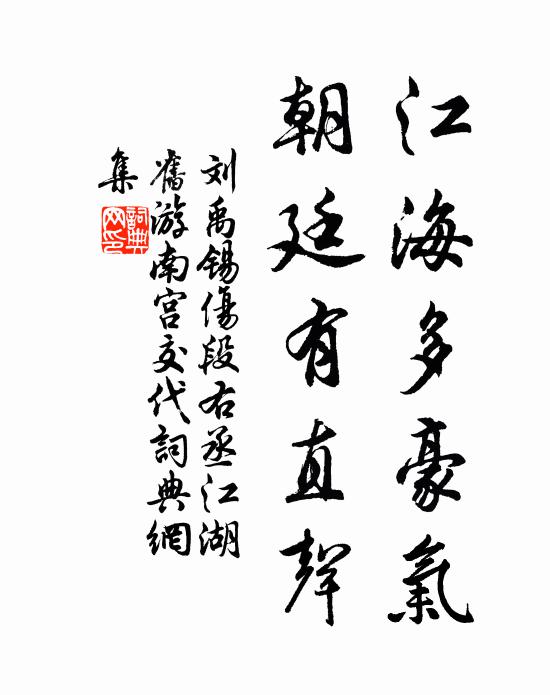 江海多豪氣
朝廷有直聲
刘禹锡傷段右丞江湖
舊游南宫交代詞典網
集
詞典
网印